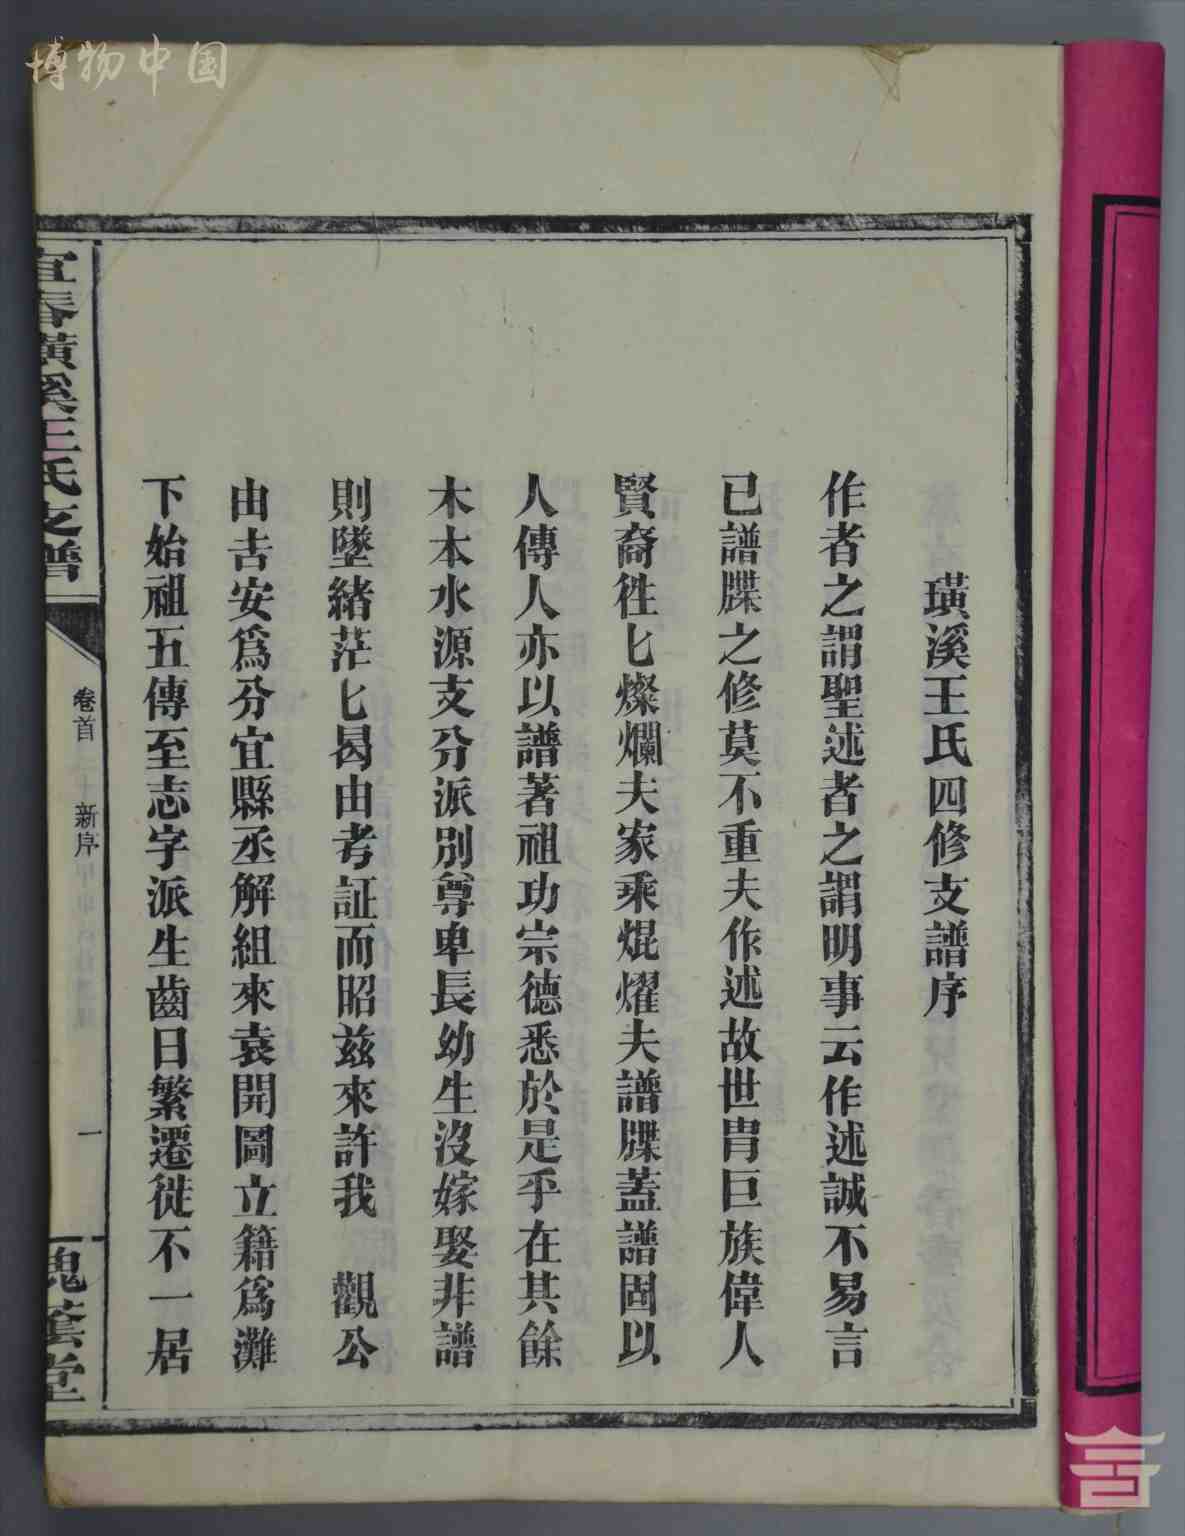 璜溪王氏四修支譜序
作者之謂聖述者之謂明事云作述誠不易言
已譜牒之修莫不重夫作述故世胄巨族偉人
賢裔徃匕燦爛夫家乘焜燿夫譜牒蓋譜固以
人傳人亦以譜著祖功宗德悉於是乎在其餘
木本水源支分派別尊卑長幼生沒嫁娶非譜
則墜緒茫匕曷由考証而昭兹來許我 觀公
由吉安爲分宜縣丞解組來袁開圖立籍爲灘
下始祖五傳至志字派生齒日繁遷徙不一居
宜春璜溪王氏支譜
卷首
新序
一
槐蔭堂
博物中国